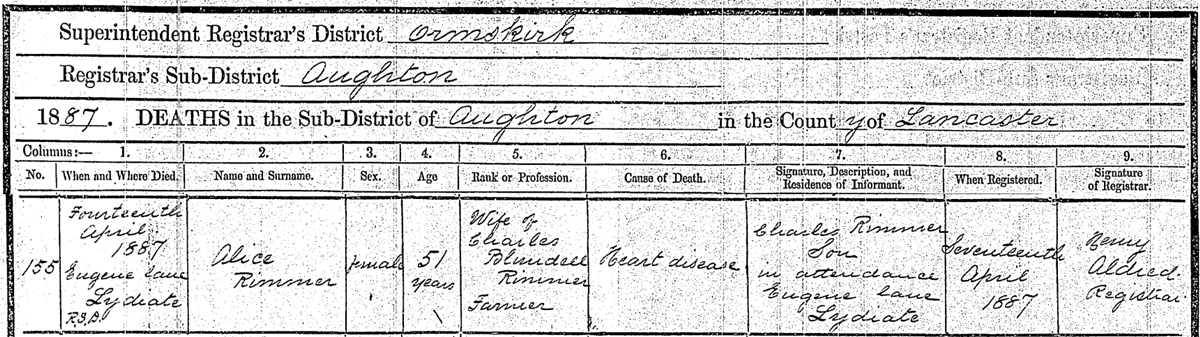 Superintendent Registrar's District Ormskirk
Registrar's Sub-District Aughton
1887. DEATHS in the Sub-District of Aughton in the County of Lancaster
Columns:— 1. 2. 3. 4. 5. 6. 7. 8. 9.
No. When and Where Died. Name and Surname. Sex. Age Rank or Profession. Cause of Death. Signature, Description, and Residence of Informant. When Registered. Signature of Registrar.
155
Fourteenth
April
1887
Eugene lane
Lydiate
R.S.D.
Alice
Rimmer
female
51
years
Wife of
Charles
Blundell
Rimmer
Farmer
Heart disease
Charles Rimmer
Son
in attendance
Eugene lane
Lydiate
Seventeenth
April
1887
Henry
Aldred
Registrar